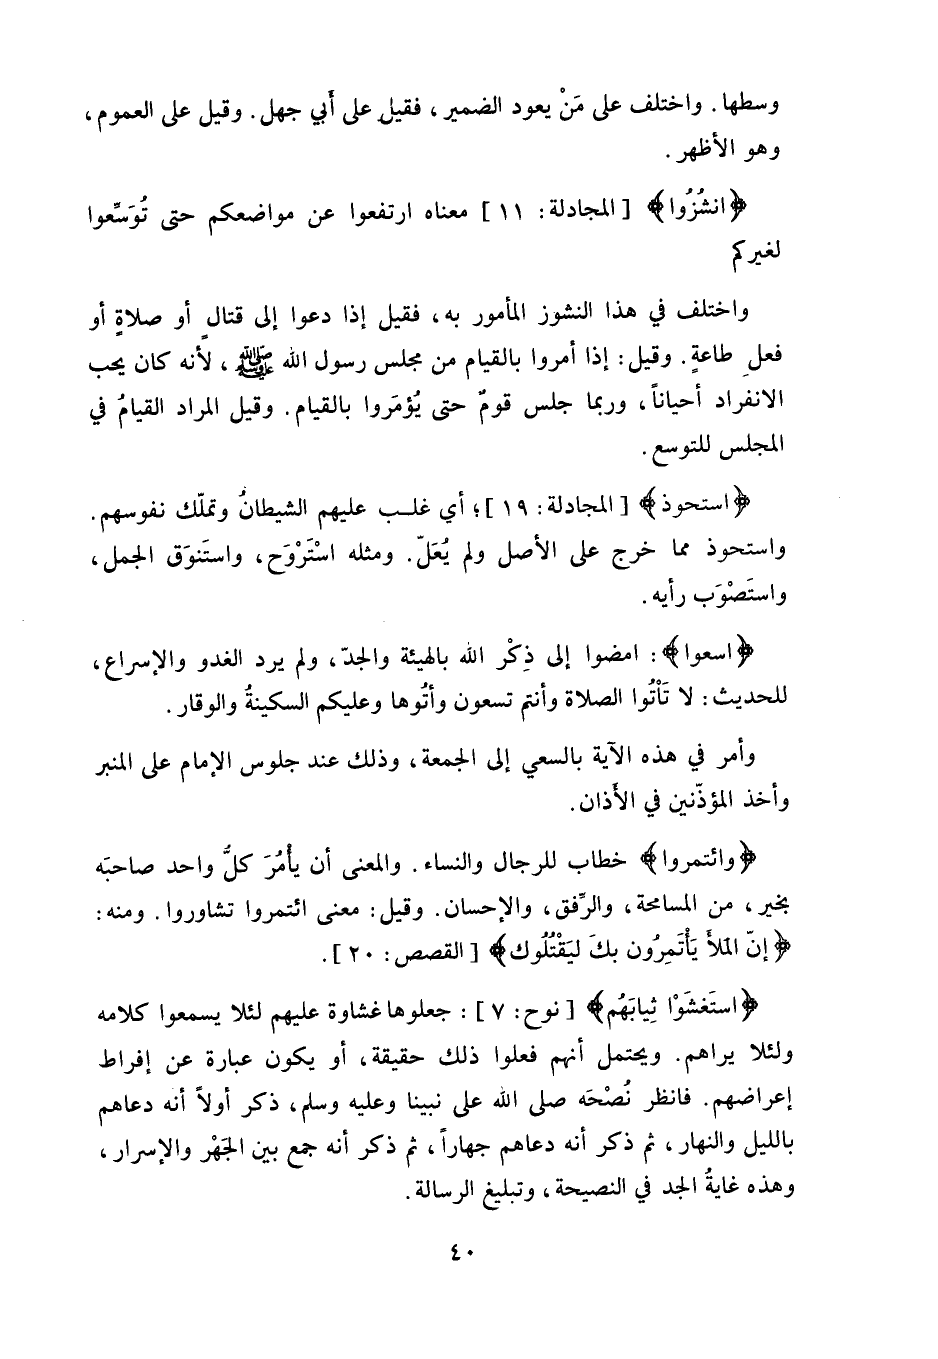 وسطها. واختلف على مَنْ يعود الضمير، فقيل على أَبي جهل. وقيل على العموم،
وهو الأظهر.
﴿انشُزُوا﴾ [المجادلة: ١١] معناه ارتفعوا عن مواضعكم حتى تُوَسِّعوا
لغيركم
واختلف في هذا النشوز المأمور به، فقيل إذا دعوا إلى قتالٍ أو صلاةٍ أو
فعلِ طاعةٍ. وقيل: إذا أمروا بالقيام من مجلس رسول الله ﷺ، لأنه كان يحب
الانفراد أحياناً، وربما جلس قومٌ حتى يُؤمَروا بالقيام. وقيل المراد القيامُ في
المجلس للتوسع.
﴿استحوذ﴾ [المجادلة: ١٩]؛ أي غلـب عليهم الشيطانُ وتملّك نفوسهم.
واستحوذ مما خرج على الأصل ولم يُعَلّ. ومثله اسْتَرْوَح، واستَنوَق الجمل،
واستَصْوَب رأيه.
﴿اسعوا﴾: امضوا إلى ذِكْر الله بالهيئة والجدّ، ولم يرد الغدو والإسراع،
للحديث: لا تَأْتُوا الصلاة وأنتم تسعون وأتُوها وعليكم السكينةُ والوقار.
وأمر في هذه الآية بالسعي إلى الجمعة، وذلك عند جلوس الإمام على المنبر
وأخذ المؤذّنين في الأَذان.
﴿وائتمروا﴾ خطاب للرجال والنساء. والمعنى أن يأْمُرَ كلُّ واحد صاحبَه
بخير، من المسامحة، والرِّفق، والإحسان. وقيل: معنى ائتمروا تشاوروا. ومنه:
﴿إنّ الملأَ يَأْتَمِرُون بكَ ليَقْتُلُوك﴾ [القصص: ٢٠].
﴿استَغشَوْا ثِيابَهُم﴾ [نوح: ٧]: جعلوها غشاوة عليهم لئلا يسمعوا كلامه
ولئلا يراهم. ويحتمل أنهم فعلوا ذلك حقيقة، أو يكون عبارة عن إفراط
إعراضهم. فانظر نُصْحَه صلى الله على نبينا وعليه وسلم، ذكر أولاً أنه دعاهم
بالليل والنهار، ثم ذكر أنه دعاهم جهاراً، ثم ذكر أنه جمع بين الجَهْر والإسرار،
وهذه غايةُ الجد في النصيحة، وتبليغ الرسالة.
٤٠